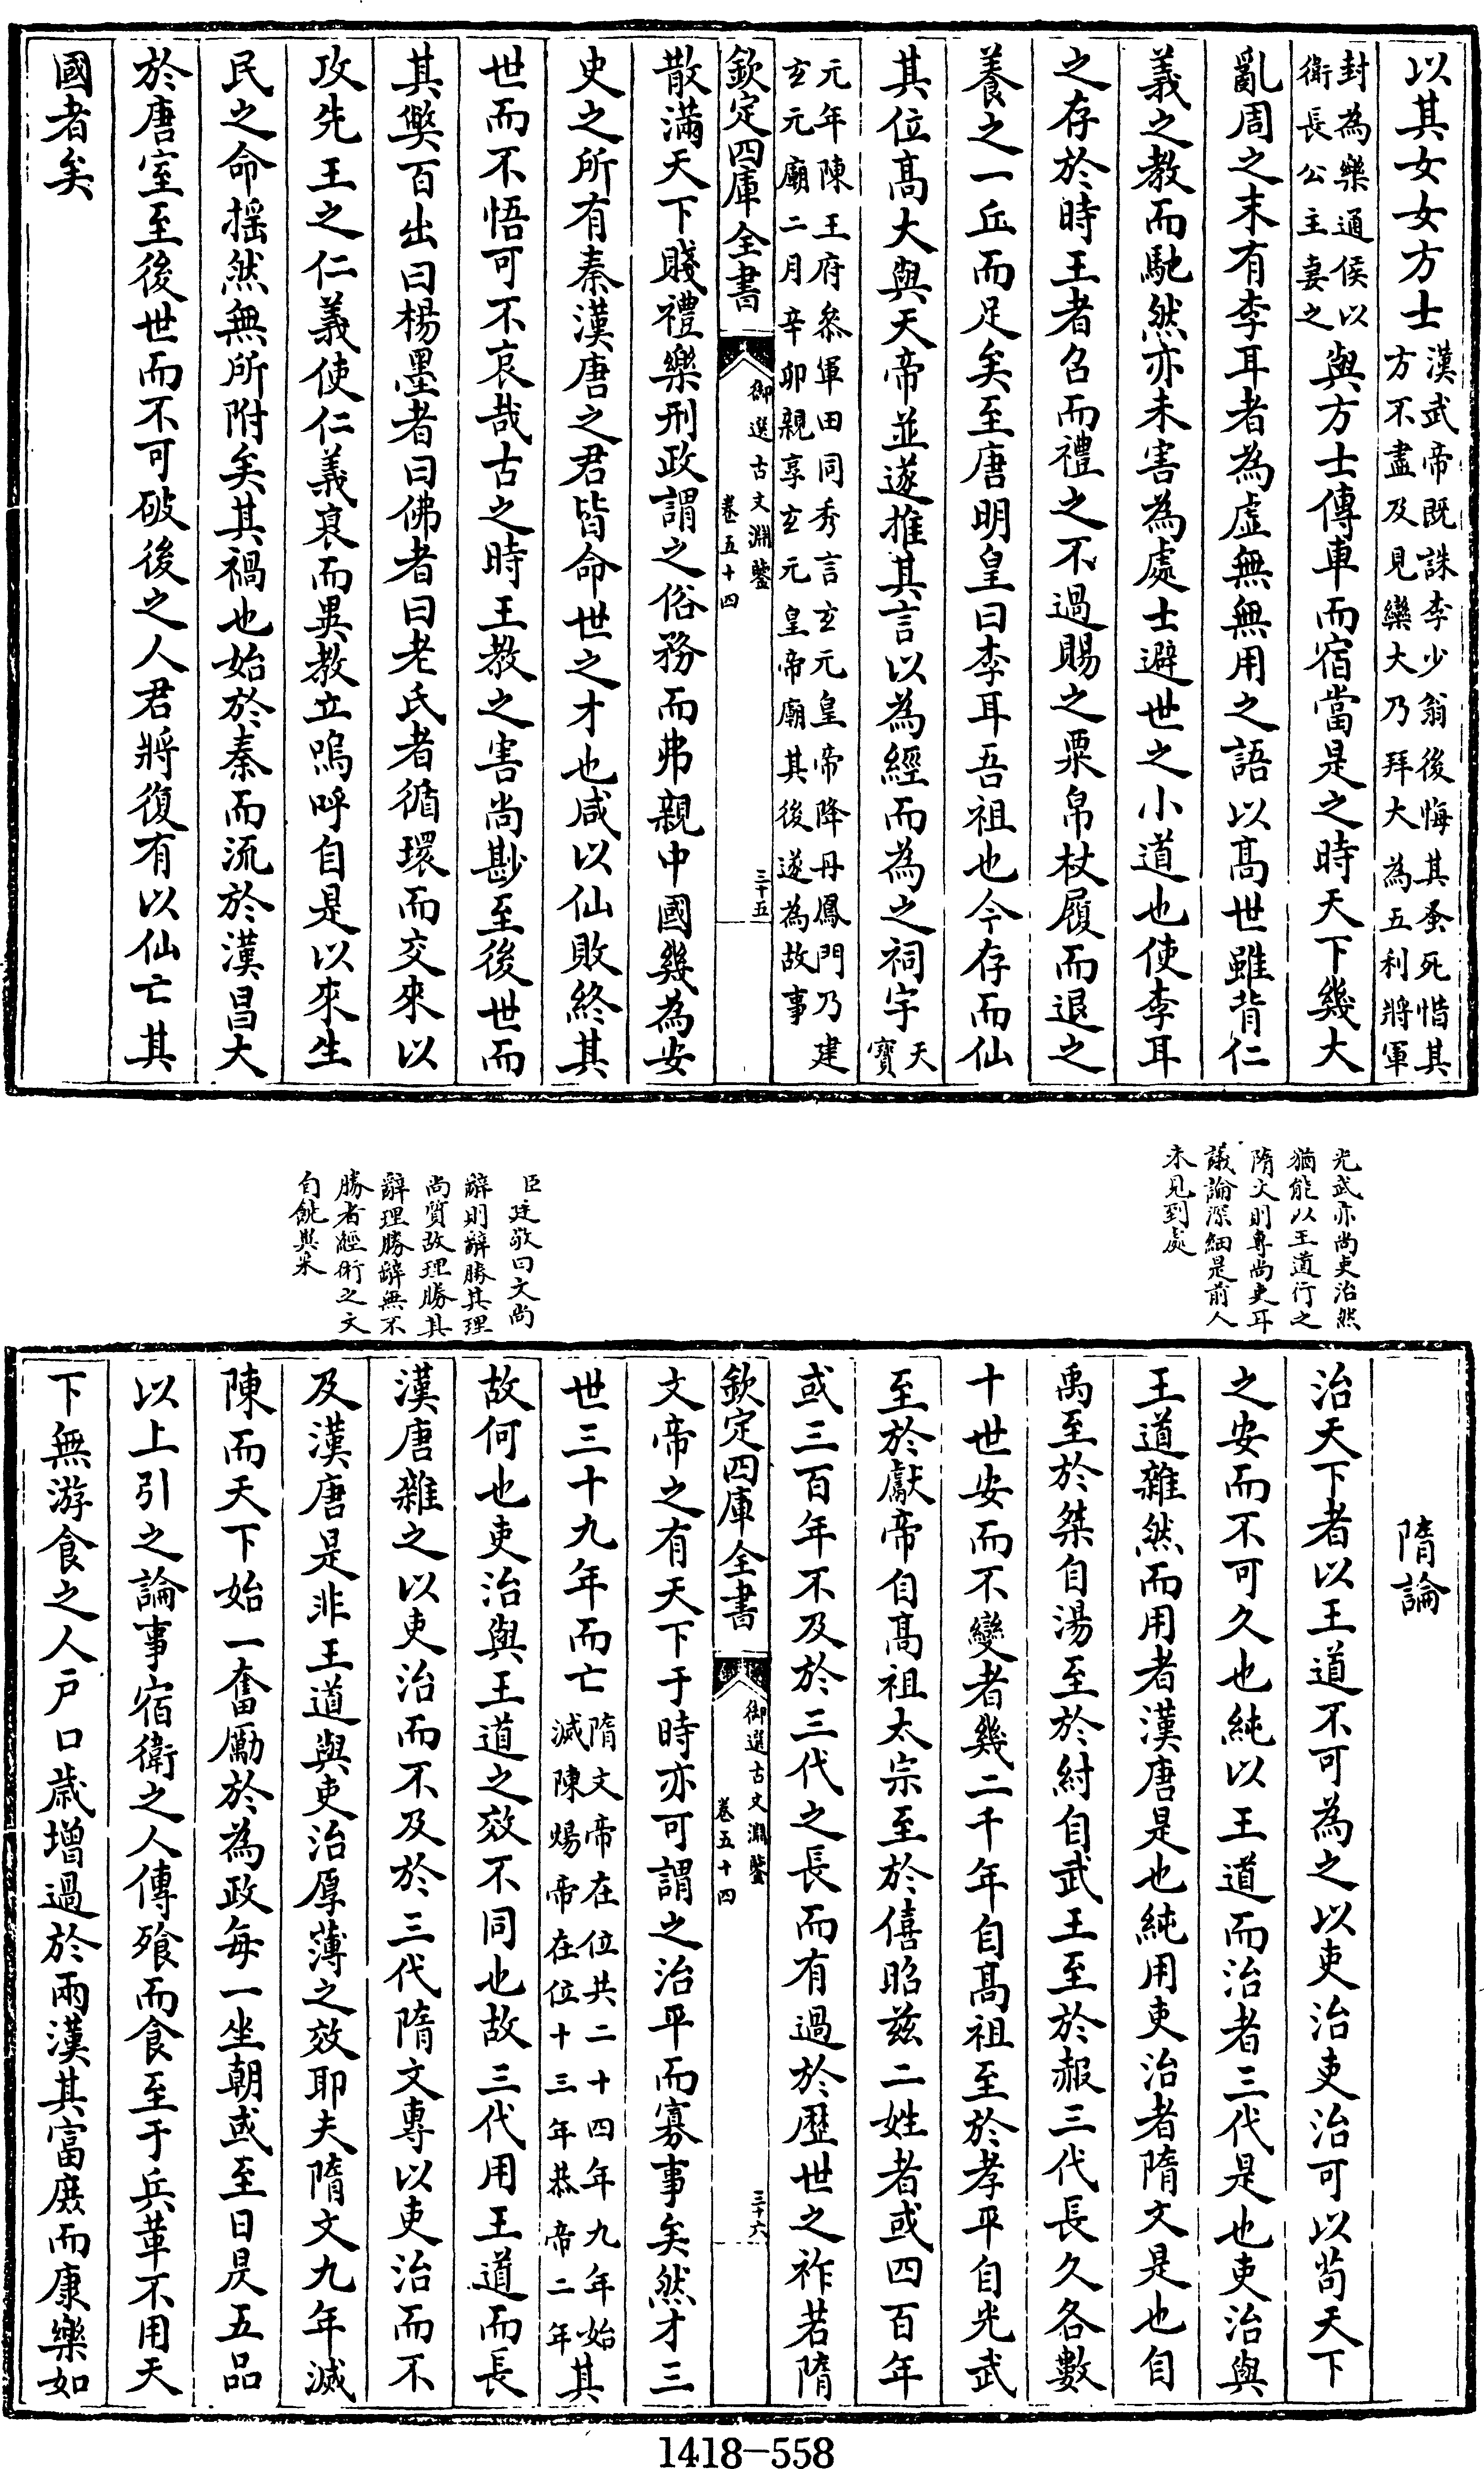 以其女女方士漢武帝既誅李少翁後悔其蚤死惜其方不盡及見欒大乃拜大為五利將軍
封為樂通侯以衛長公主妻之與方士傳車而宿當是之時天下幾大
亂周之末有李耳者為虛無無用之語以高世雖背仁
義之教而馳然亦未害為處士避世之小道也使李耳
之存於時王者召而禮之不過賜之粟帛杖履而退之
養之一丘而足矣至唐明皇曰李耳吾祖也今存而仙
其位高大與天帝並遂推其言以為經而為之祠宇天寶
元年陳王府叅軍田同秀言玄元皇帝降丹鳳門乃建玄元廟二月辛卯親享玄元皇帝廟其後遂為故事
欽定四庫全書
御選古文淵鑒
卷五十四
三十五
散滿天下賤禮樂刑政謂之俗務而弗親中國幾為安
史之所有秦漢唐之君皆命世之才也咸以仙敗終其
世而不悟可不哀哉古之時王教之害尚尠至後世而
其獘百出曰楊墨者曰佛者曰老氏者循環而交來以
攻先王之仁義使仁義衰而異教立嗚呼自是以來生
民之命揺然無所附矣其禍也始於秦而流於漢昌大
於唐室至後世而不可破後之人君將復有以仙亡其
國者矣
光武亦尚吏治然
猶能以王道行之
隋文則專尚吏耳
議論深細是前人
未見到處
臣廷敬曰文尚
辭則辭勝其理
尚質故理勝其
辭理勝辭無不
勝者經術之文
自餙與采
隋論
治天下者以王道不可為之以吏治吏治可以茍天下
之安而不可久也純以王道而治者三代是也吏治與
王道雜然而用者漢唐是也純用吏治者隋文是也自
禹至於桀自湯至於紂自武王至於赧三代長久各數
十世安而不變者幾二千年自高祖至於孝平自光武
至於獻帝自高祖太宗至於僖昭兹二姓者或四百年
或三百年不及於三代之長而有過於歴世之祚若隋
欽定四庫全書
御選古文淵鑒
卷五十四
三十六
文帝之有天下于時亦可謂之治平而寡事矣然才三
世三十九年而亡隋文帝在位共二十四年九年始滅陳煬帝在位十三年恭帝二年其
故何也吏治與王道之效不同也故三代用王道而長
漢唐雜之以吏治而不及於三代隋文專以吏治而不
及漢唐是非王道與吏治厚薄之效耶夫隋文九年滅
陳而天下始一奮勵於為政每一坐朝或至日昃五品
以上引之論事宿衛之人傳飱而食至于兵革不用天
下無游食之人戸口歳增過於兩漢其富庶而康樂如
1418-558